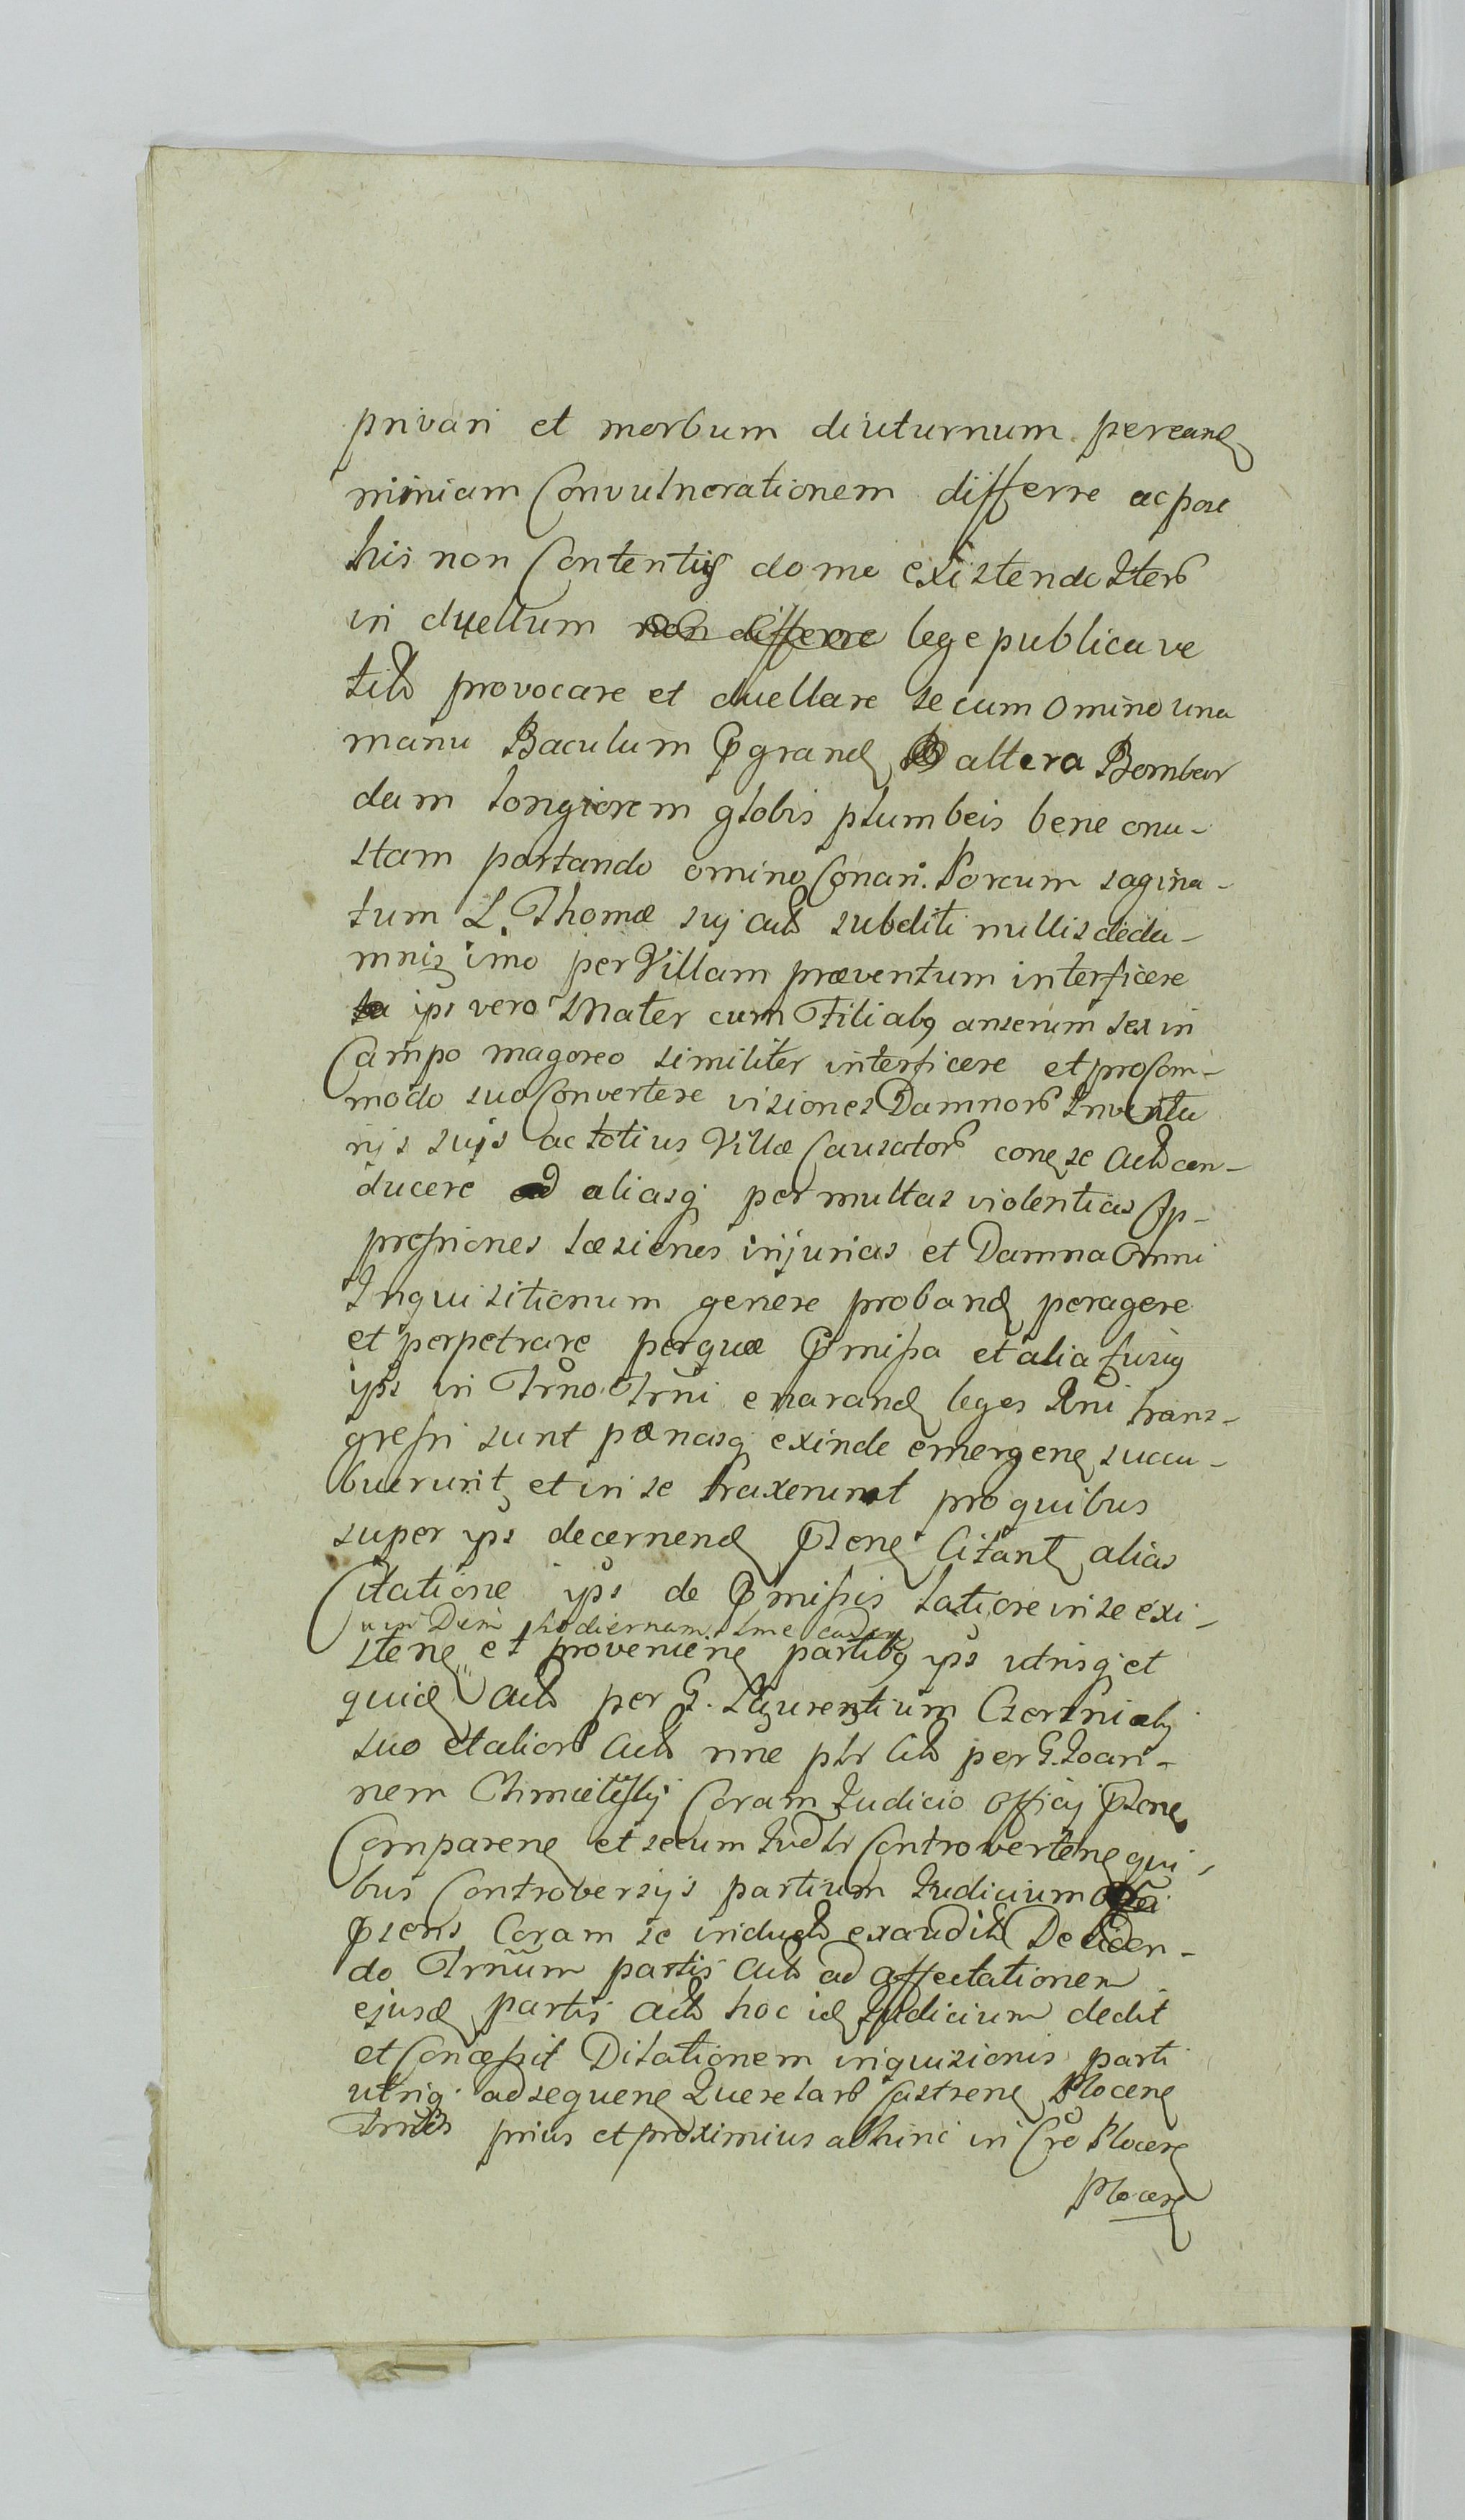 privari et morbum diuturnum pereand
nimiam Convulnerationem differre ac post
his non Contentus domo existendo Iterb
in duellum non differre lege publica ve
tito provocare et duellare secum omino una
manu Baculum prgrand altera Bombar
dam longiorem globis plumbeis bene onu-
stam portando omino Conari. Porcum sagina-
tum L. Thomæ suj Acto subditi nullis deda-
mnis imo per Villam præventum interficere
ips vero Mater cum Filiabq anserum sex in
Campo magoreo similiter interficere et pro Com-
modo suo Convertere visiones Damnorb Inventa
rijs suis ac totius Villæ Causatorb cone se Acto con-
ducere aliasq per multas violentias Op-
pressiones læsiones injurias et Damna Omni
Inquisitionum genere proband peragere
et perpetrare perquæ prmissa et alia fusiq
ips in Trno Trni enarand leges Rni trans-
gressi sunt pænasq exinde emergene succu-
buerunt et in se traxerunt pro quibus
super ips decernend prsene Citant alias
Citatione ips de prmissis latiore in se exi-
in Diem hodiernam tme caden
stene et proveniene partibq ips utrisq et
quid Acto per G. Laurentium Czerski alij
suo et aliorb Acto nne ptr Cito per G. Joan-
nem Chmielesky Coram Judicio Officij prsene
Comparene et secum Judtr Controvertene qui-
bus Controversijs partium Judicium
prsens Coram se inducto exaudito Deciden-
do Trnum partis Acto ad affectationem
ejusd partis Acto hoc id Judicium dedit
et Concessit Dilationem inquisionis parti
utriq ad sequene Querelarb Castrene Plocene
Trnos prius et proximius abhinc in Cro Plocene
Plocene